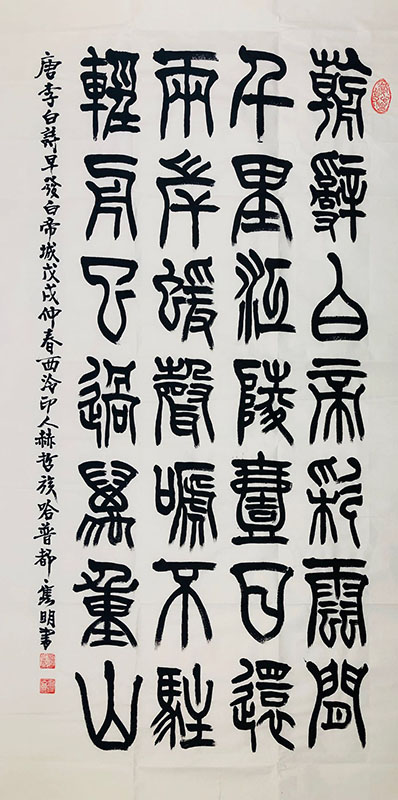 朝辭白帝彩雲間
千里江陵壹日還
兩岸蝯聲嗁不駐
輕舟已過萬重山
唐李白詩早發白帝城戊戌仲春西泠印人赫哲族哈普都雋明書